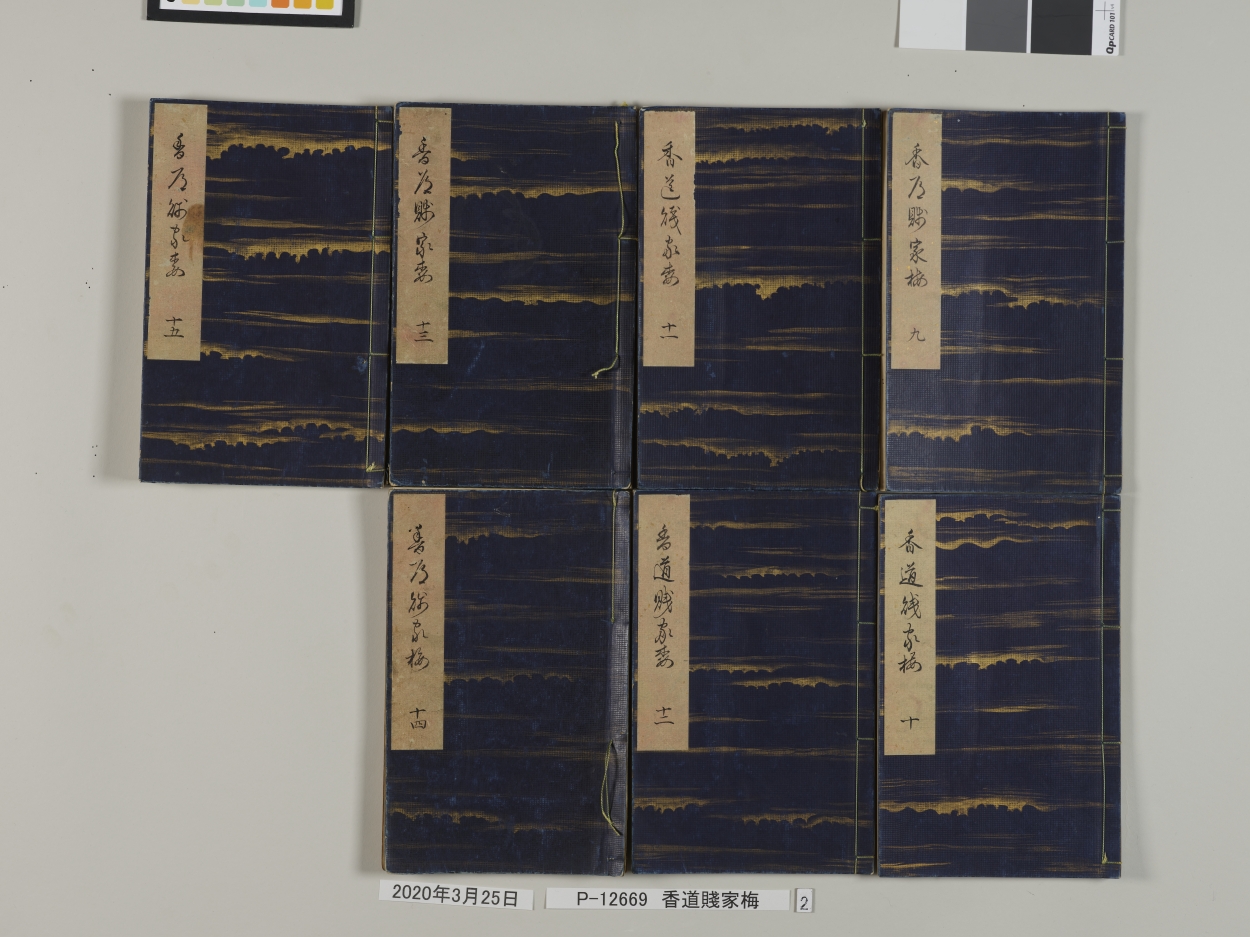 香道賤家梅 九
香道賤家梅 十
香道賤家梅 十一
香道賤家梅 十二
香道賤家梅 十三
香道賤家梅 十四
香道賤家梅 十五
2020年3月25日
P-12669 香道賤家梅 2
QPCARD 101